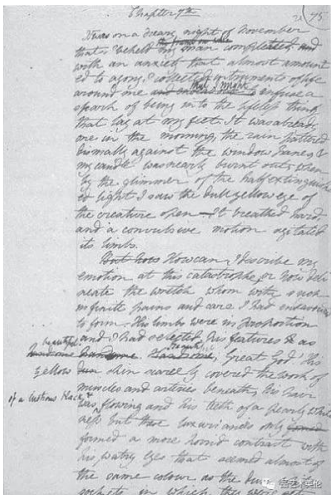 Chapter 7th
It was on a dreary night of November
that I beheld the frame on which my man completed and
with an anxiety that almost amount
ed to agony, I collected instruments of life
around me and endeavour that I might infuse a
spark of being into the lifeless thing
that lay at my feet. It was already
one in the morning, the rain pattered
dismally against the window panes, &
my candle was nearly burnt out, when
by the glimmer of the half extinguish
ed light I saw the dull yellow eye of
the creature open — It breathed hard,
and a convulsive motion agitated
its limbs.
But how How can I describe my
emotion at this catastrophe; or how deli
neate the wretch whom with such
infinite pains and care I had endeavoured
to form. His limbs were in proportion
and I had selected his features as
beautiful
handsome handsome. Beautiful; Great God! His
yellow skin scarcely covered the work of
muscles and arteries beneath; his hair
of a lustrous black &
was flowing and his teeth of a pearly white
ness but these luxuriances only formed
formed a more horrid contrast with
his watry eyes that seemed almost of
the same colour as the dun
sockets in which they were set